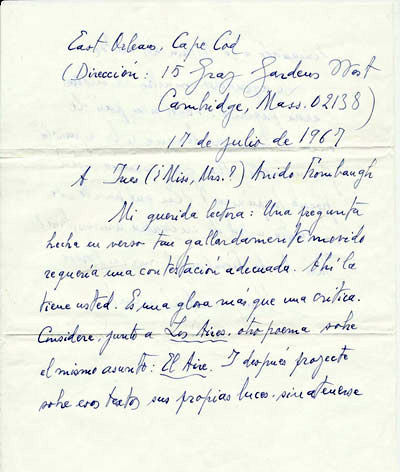 East Orleans, Cape Cod
(Dirección: 15 Gray Gardens West
Cambridge, Mass. 02138)
17 de julio de 1967
A Inés (¿Miss, Mrs.?) Anido Frombaugh
Mi querida lectora: Una pregunta
hecha en verso tan gallardamente movido
requería una contestación adecuada. Ahí la
tiene usted. Es una glosa más que una crítica.
Considere, junto a Los Aires, otro poema sobre
el mismo asunto: El Aire. Y después proyecte
sobre esos textos sus propias luces, sin atenerse